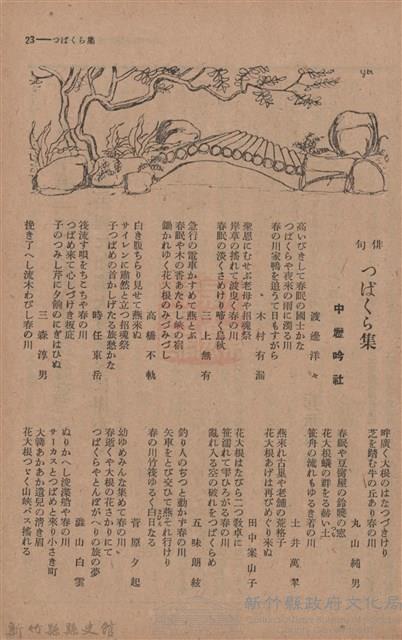 23——つばくら集
俳句 つばくら集
中壢吟社
渡邊洋々
高いびきして春眠の國士かな
つばくらや夜來の雨に濁る川
春の川家鴨を追うて日もすがら
木村有漏
聖恩にむせぶ老母や招魂祭
岸草の搖れて波曳く春の川
春眠の淡くさめけり啼く烏秋
三上無有
急行の電車かすめて燕とぶ
春眠や木の香あたらし峽の宿
鋤かれゆく花大根のみづみづし
高橋不軌
白き腹ちらり見せて燕來ぬ
サイレンに肅然と立つ招魂祭
子つばめの首かしげたる族愁かな
時任東岳
筏流す唄をちこちや春の川
つばめ來て心しづけき板庇
子のつみし芹に夕餉のにぎはひぬ
三森淳男
挽き了へし流木わびし春の川
畔廣く大根のはなつづけけり
芝を踏む牛の丘あり春の川
丸山純男
春眠や豆腐屋の鈴曉の窓
花大根蟻の群をる赫い土
笹舟の流れもゆるき若の川
土井萬翠
燕來れ古巣や老舗の荒格子
花大根あげは再びめぐり來ぬ
田中案山子
花大根はなびら二つ教卓に
笹濡れて雫ひろがる春の川
亂れ入る空の破れをつばくらめ
五味朗絃
釣り人のぢつと動かず春の川
矢車をとび交ひて燕それ行けり
春の川竹筏ゆるく白日なる
菅原夕起
幼ゆめみんな集めて春の川
春逝くや大根の花さかりにて
つばくらやとんぼがへりの族の夢
澁山白雲
ぬりかへし浚渫船や春の川
サーカスとつばめと來り小さき町
大鷲あかあか遺兒の清き眉
花大根つゞく山峽バス搖れる
新竹縣縣史館
新竹縣政府文化局